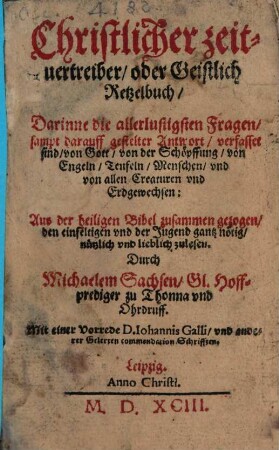 Christlicher zeit-
uertreiber/ oder Geistlich
Retzelbuch/
Darinne die allerlustigsten Fragen/
sampt darauff gestelter Antwort/ verfasset
sind/ von Gott/ von der Schöpffung/ von
Engeln/ Teufeln/ Menschen/ vnd
von allen Creaturen vnd
Erdgewechsen:
Aus der heiligen Bibel zusammen gezogen/
den einfeltigen vnd der Jugend gantz nötig/
nützlich vnd lieblich zulesen.
Durch
Michaelem Sachsen/ Gl. Hoff-
prediger zu Thonna vnd
Ohrdruff.
Mit einer Vorrede D. Iohannis Galli/ vnd ande-
rer Gelerten commendation Schrifften.
Leipzig.
Anno Christi.
M. D. XCIII.